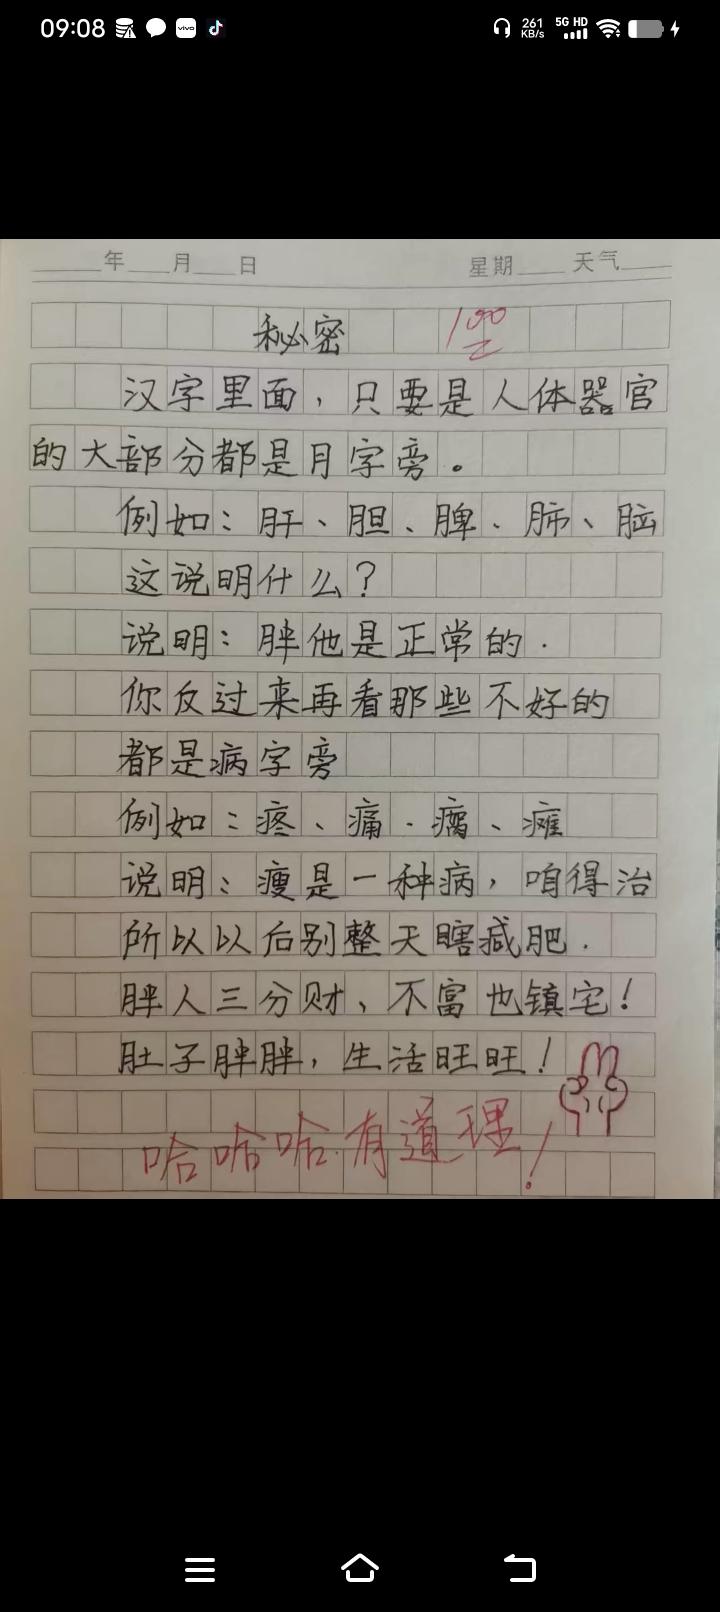 09:08
vivo
261 KB/s
5G HD
年 月 日 星期 天气
秘密 100
汉字里面，只要是人体器官
的大部分都是月字旁。
例如：肝、胆、脾、肺、脑
这说明什么？
说明：胖他是正常的.
你反过来再看那些不好的
都是病字旁
例如：疼、痛.瘸、瘫
说明：瘦是一种病，咱得治
所以以后别整天瞎减肥.
胖人三分财、不富也镇宅！
肚子胖胖，生活旺旺！
哈哈哈.有道理！